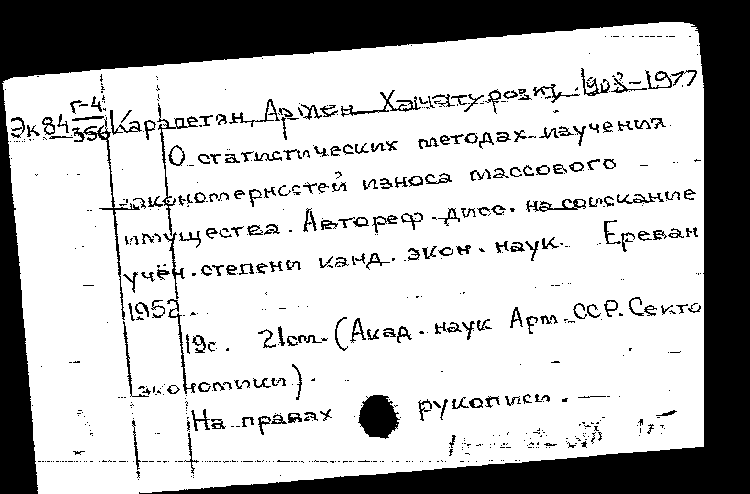 Эк84 Г-4
356
Карапетян, Армен Хачатурович, 1908-1977
О статистических методах изучения
закономерностей износа массового
имущества. Автореф. дисс. на соискание
учён. степени канд. экон. наук. Ереван
1952.
19с. 21см. (Акад. наук Арм. ССР. Секто
экономики).
На правах рукописи.